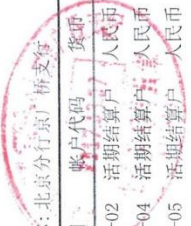 :北京分行京广桥支行
帐户代码 货币
-02 活期结算户 人民币
-04 活期结算户 人民币
-05 活期结算户 人民币